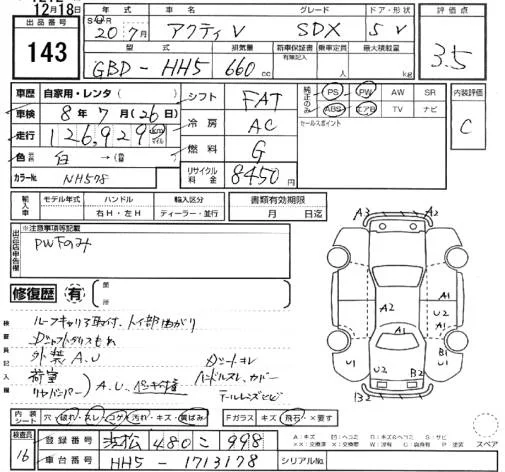 12月18日
年式
車名
グレード
ドア・形状
評価点
出品番号
143
20年7月
アクティV
SDX
5V
3.5
型式
排気量
新車保証書
有無記入
乗車定員
最大積載量
GBD-HH5
660cc
人
kg
車歴
自家用・レンタ
シフト
FAT
純正のみ
PS
PW
AW
SR
内装評価
車検
8年7月(26日)
ABS
エアB
TV
ナビ
C
走行
126,929
km
マイル
冷房
AC
セールスポイント
色
白
→
燃料
G
カラーNo.
NH578
リサイクル料金
8450円
輸入車
モデル年式
ハンドル
輸入区分
書類有効期限
右H・左H
ディーラー・並行
月 日迄
※注意事項等記載
出品店申告欄
PWFのみ
修復歴
有
箇所
検査員記入欄
ルーフキャリア取付、トイ部曲がり
Dシャフトグリスもれ
外装A.U
荷室
リヤバンパー
A.U.ペンキ付着
ダッシュヨレ
ハンドルスレ、カバー
テールレンズヒビ
A3
A2
A2
A1
U2
A1
A1
B1
U1
U1
U2
B2
B2
内装シート
穴・破れ・スレ・コゲ・汚れ・キズ・黄ばみ
Fガラス
キズ・飛石・×要す
検査員
16
登録番号
浜松 480 こ 998
車台番号
HH5-1713178
シリアルNo.
スペア